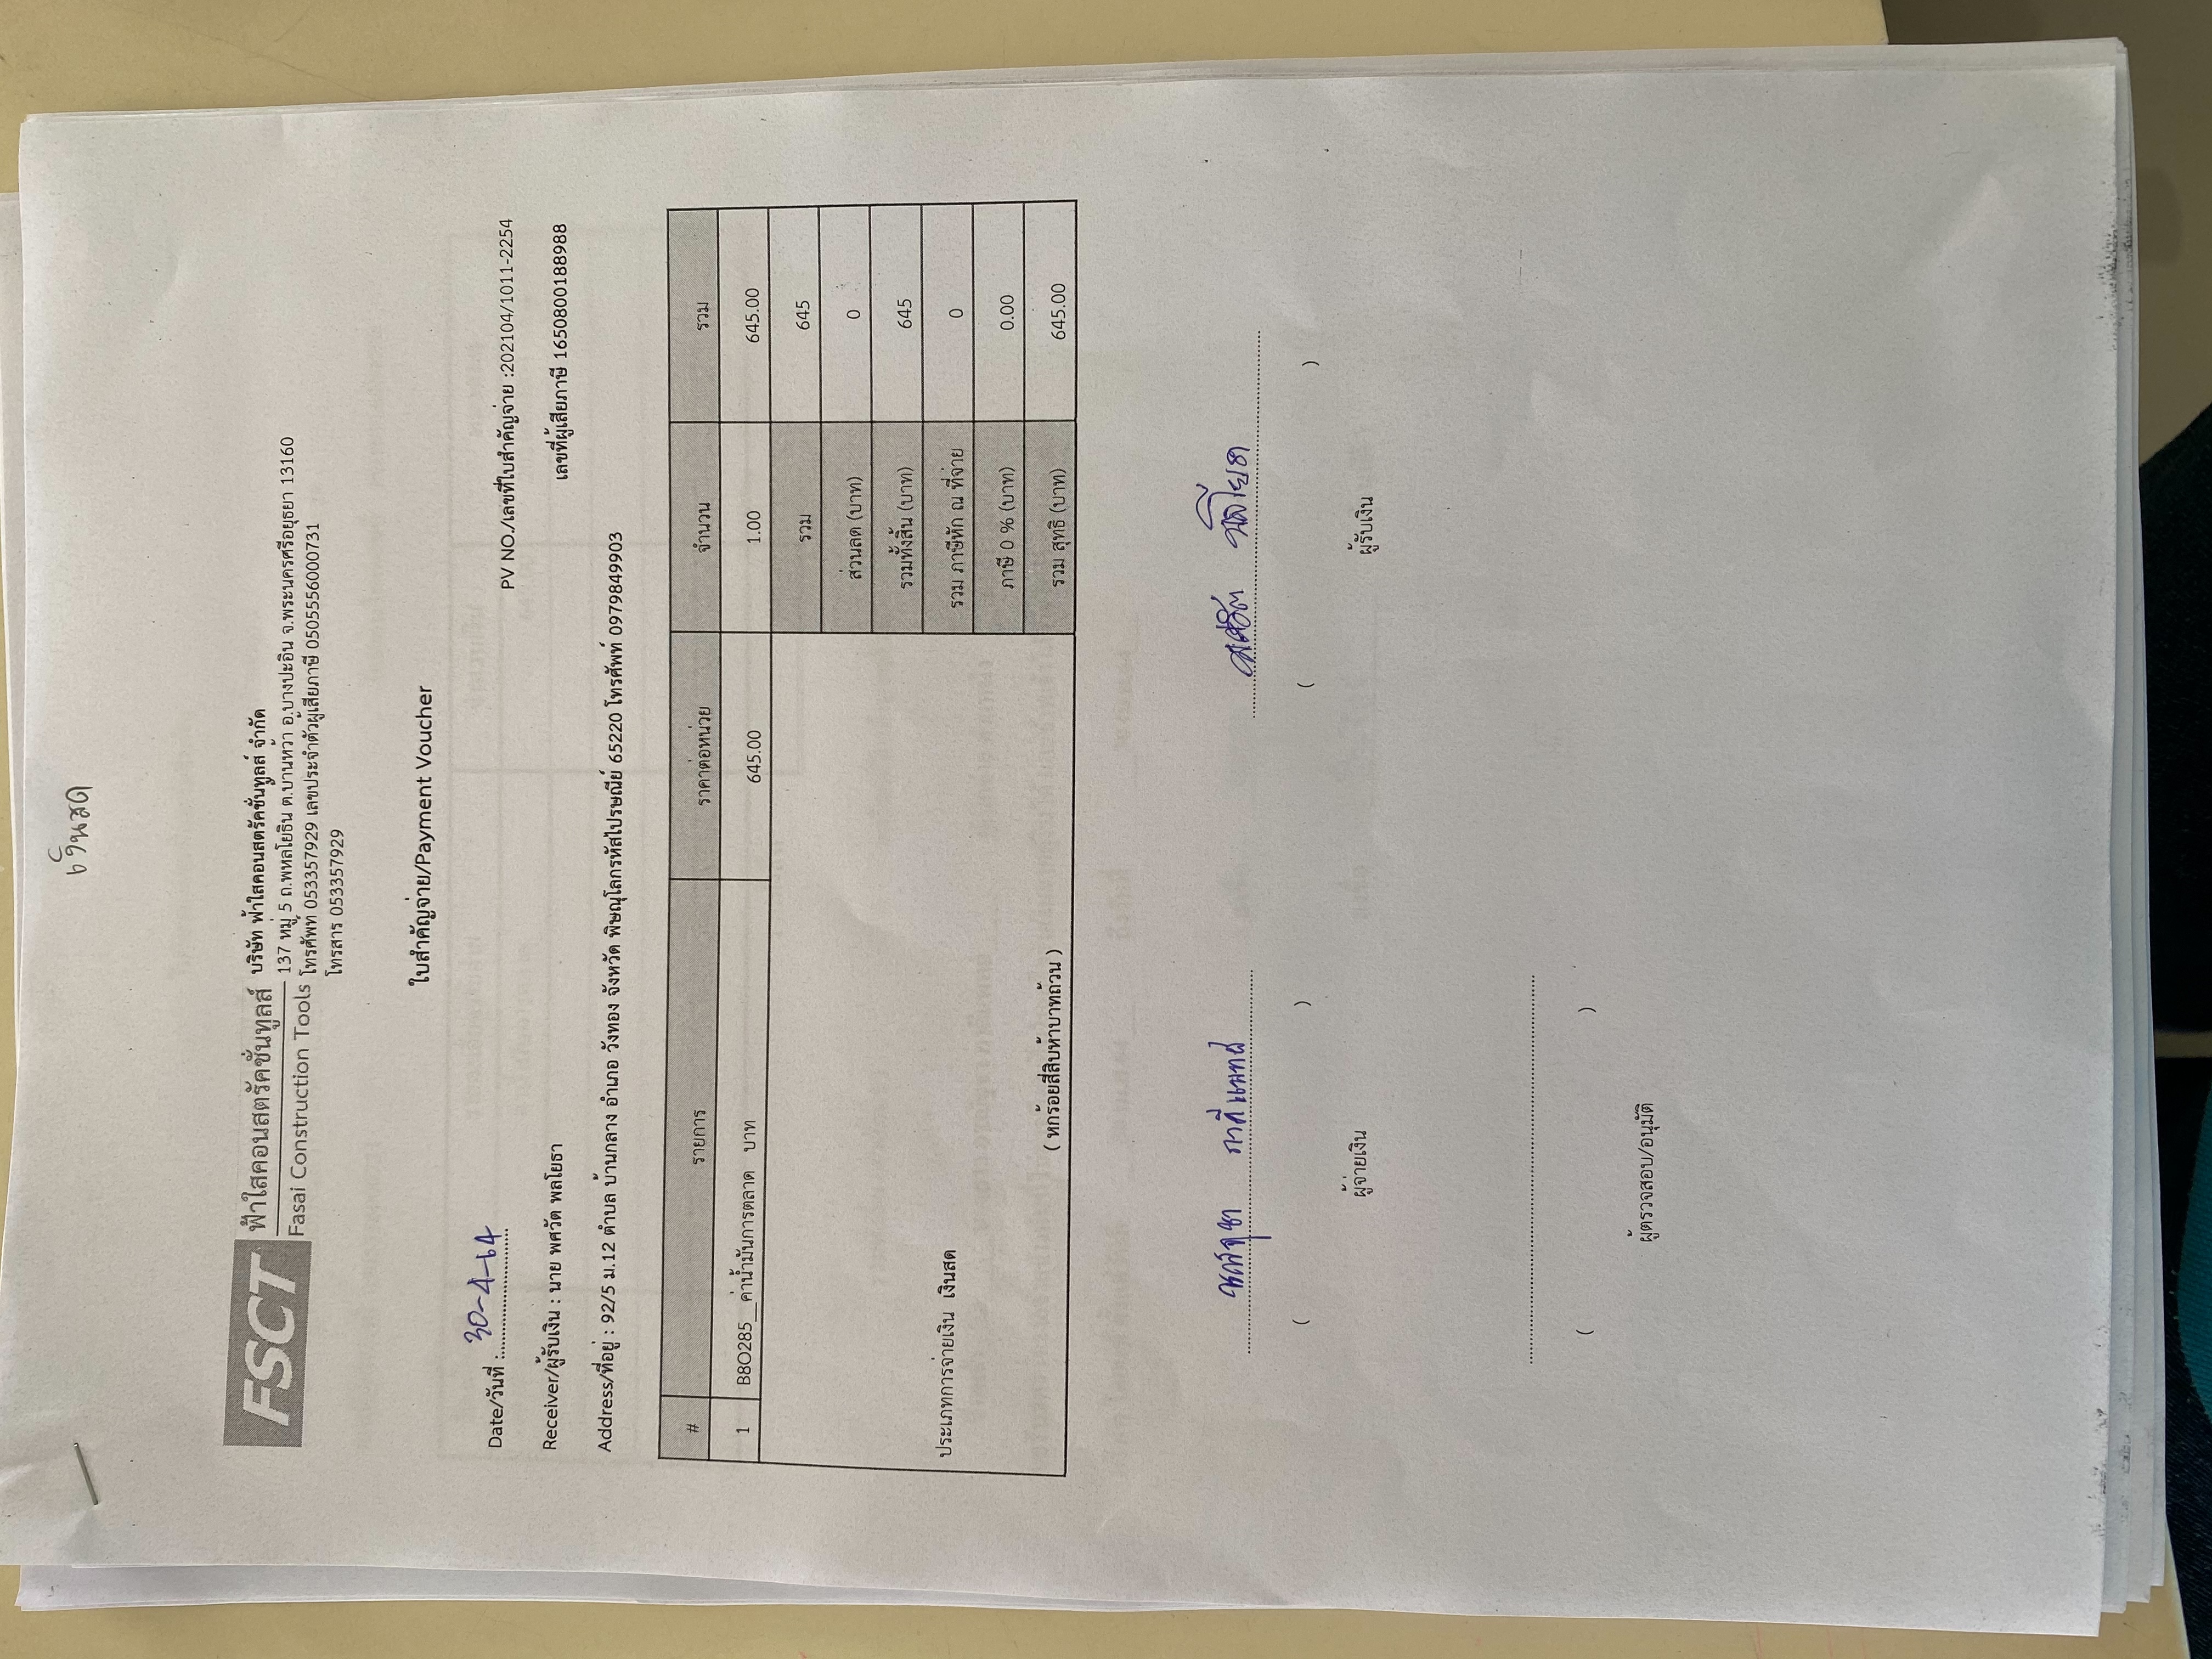 เงินสด
FSCT ฟ้าใสคอนสตรัคชั่นทูลส์
Fasai Construction Tools
บริษัท ฟ้าใสคอนสตรัคชั่นทูลส์ จำกัด
137 หมู่ 5 ถ.พหลโยธิน ต.บ้านหว้า อ.บางปะอิน จ.พระนครศรีอยุธยา 13160
โทรศัพท์ 053357929 เลขประจำตัวผู้เสียภาษี 0505556000731
โทรสาร 053357929
ใบสำคัญจ่าย/Payment Voucher
Date/วันที่ : 30-4-64
PV NO./เลขที่ใบสำคัญจ่าย :202104/1011-2254
Receiver/ผู้รับเงิน : นาย พศวัต พลโยธา
เลขที่ผู้เสียภาษี 1650800188988
Address/ที่อยู่ : 92/5 ม.12 ตำบล บ้านกลาง อำเภอ วังทอง จังหวัด พิษณุโลกรหัสไปรษณีย์ 65220 โทรศัพท์ 0979849903
# รายการ ราคาต่อหน่วย จำนวน รวม
1 B8O285__ค่าน้ำมันการตลาด บาท 645.00 1.00 645.00
รวม 645
ส่วนลด (บาท) 0
รวมทั้งสิ้น (บาท) 645
ประเภทการจ่ายเงิน เงินสด
รวม ภาษีหัก ณ ที่จ่าย 0
ภาษี 0 % (บาท) 0.00
( หกร้อยสี่สิบห้าบาทถ้วน )
รวม สุทธิ (บาท) 645.00
พศวัต พลโยธา
( )
( )
ผู้จ่ายเงิน
ผู้รับเงิน
( )
ผู้ตรวจสอบ/อนุมัติ